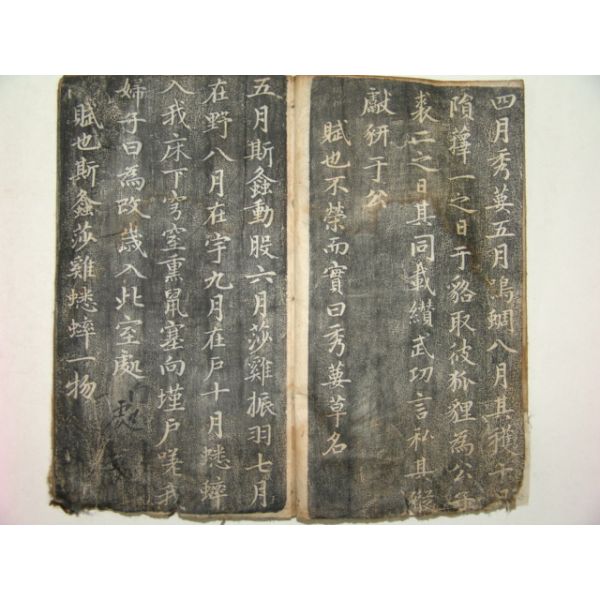 四月秀葽五月鳴蜩八月其獲十月
隕蘀一之日于貉取彼狐狸為公子
裘二之日其同載纘武功言私其豵
獻豣于公
賦也不榮而實曰秀葽草名
五月斯螽動股六月莎雞振羽七月
在野八月在宇九月在戶十月蟋蟀
入我床下穹室熏鼠塞向墐戶嗟我
婦子曰為改歲入此室處
賦也斯螽莎雞蟋蟀一物